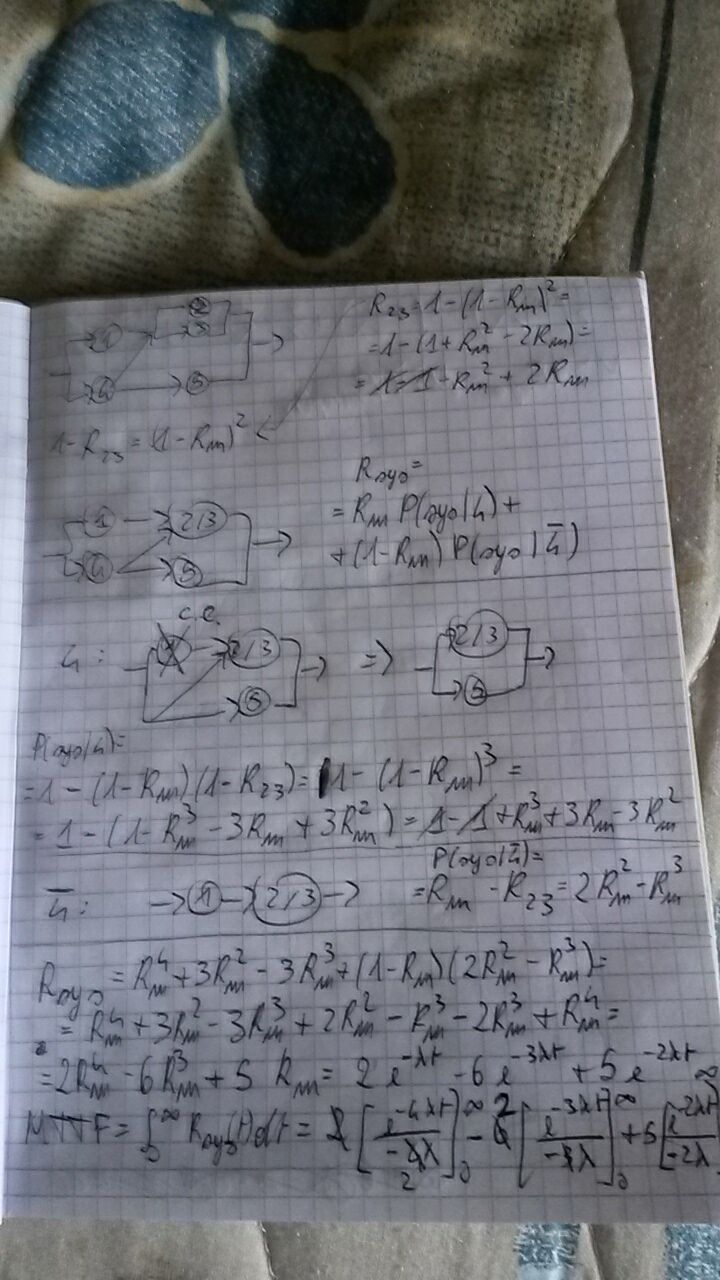 R₂₃ = 1 - (1 - Rₘ)² =
= 1 - (1 + Rₘ² - 2Rₘ) =
= 1 - 1 - Rₘ² + 2Rₘ
1 2 3 4 5
1 - R₂₃ = (1 - Rₘ)²
Rsys =
= Rₘ P(sys|4) +
+ (1 - Rₘ) P(sys|4̅)
1 2/3 4 5
C.C.
4: 1 2/3 5 => 2/3 5
P(sys|4) =
= 1 - (1 - Rₘ)(1 - R₂₃) = 1 - (1 - Rₘ)³ =
= 1 - (1 - Rₘ³ - 3Rₘ + 3Rₘ²) = 1 - 1 + Rₘ³ + 3Rₘ - 3Rₘ²
P(sys|4̅) =
4̅: → 1 → 2/3 → = Rₘ - R₂₃ = 2Rₘ² - Rₘ³
Rsys = Rₘ⁴ + 3Rₘ² - 3Rₘ³ + (1 - Rₘ)(2Rₘ² - Rₘ³) =
= Rₘ⁴ + 3Rₘ² - 3Rₘ³ + 2Rₘ² - Rₘ³ - 2Rₘ³ + Rₘ⁴ =
= 2Rₘ⁴ - 6Rₘ³ + 5 Rₘ = 2 e^-λt - 6 e^-3λt + 5 e^-2λt
MTTF = ∫₀^∞ Rsys(t) dt = [e^-4λt / -λ]₀^∞ - [e^-3λt / -λ]₀^∞ + 5 [e^-2λt / -2λ]